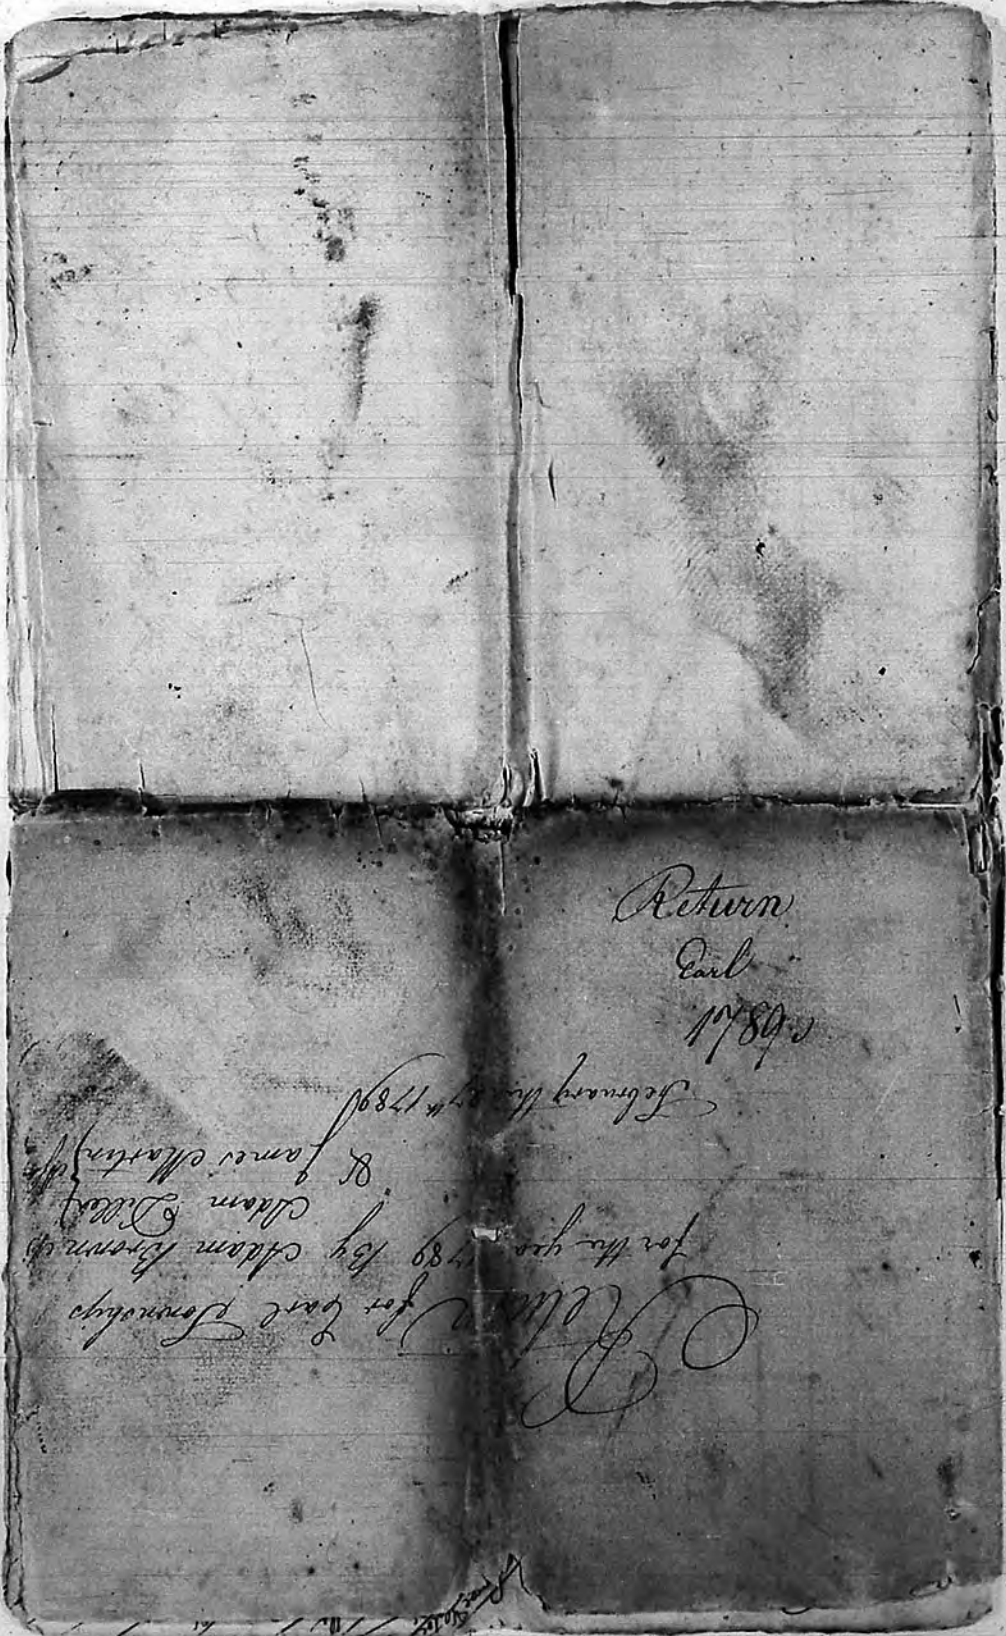 Return
Earl
1789
Return for Earl Township
for the year 1789 By Adam Brown
Adam Diller
& James Martin
February the 27th 1789